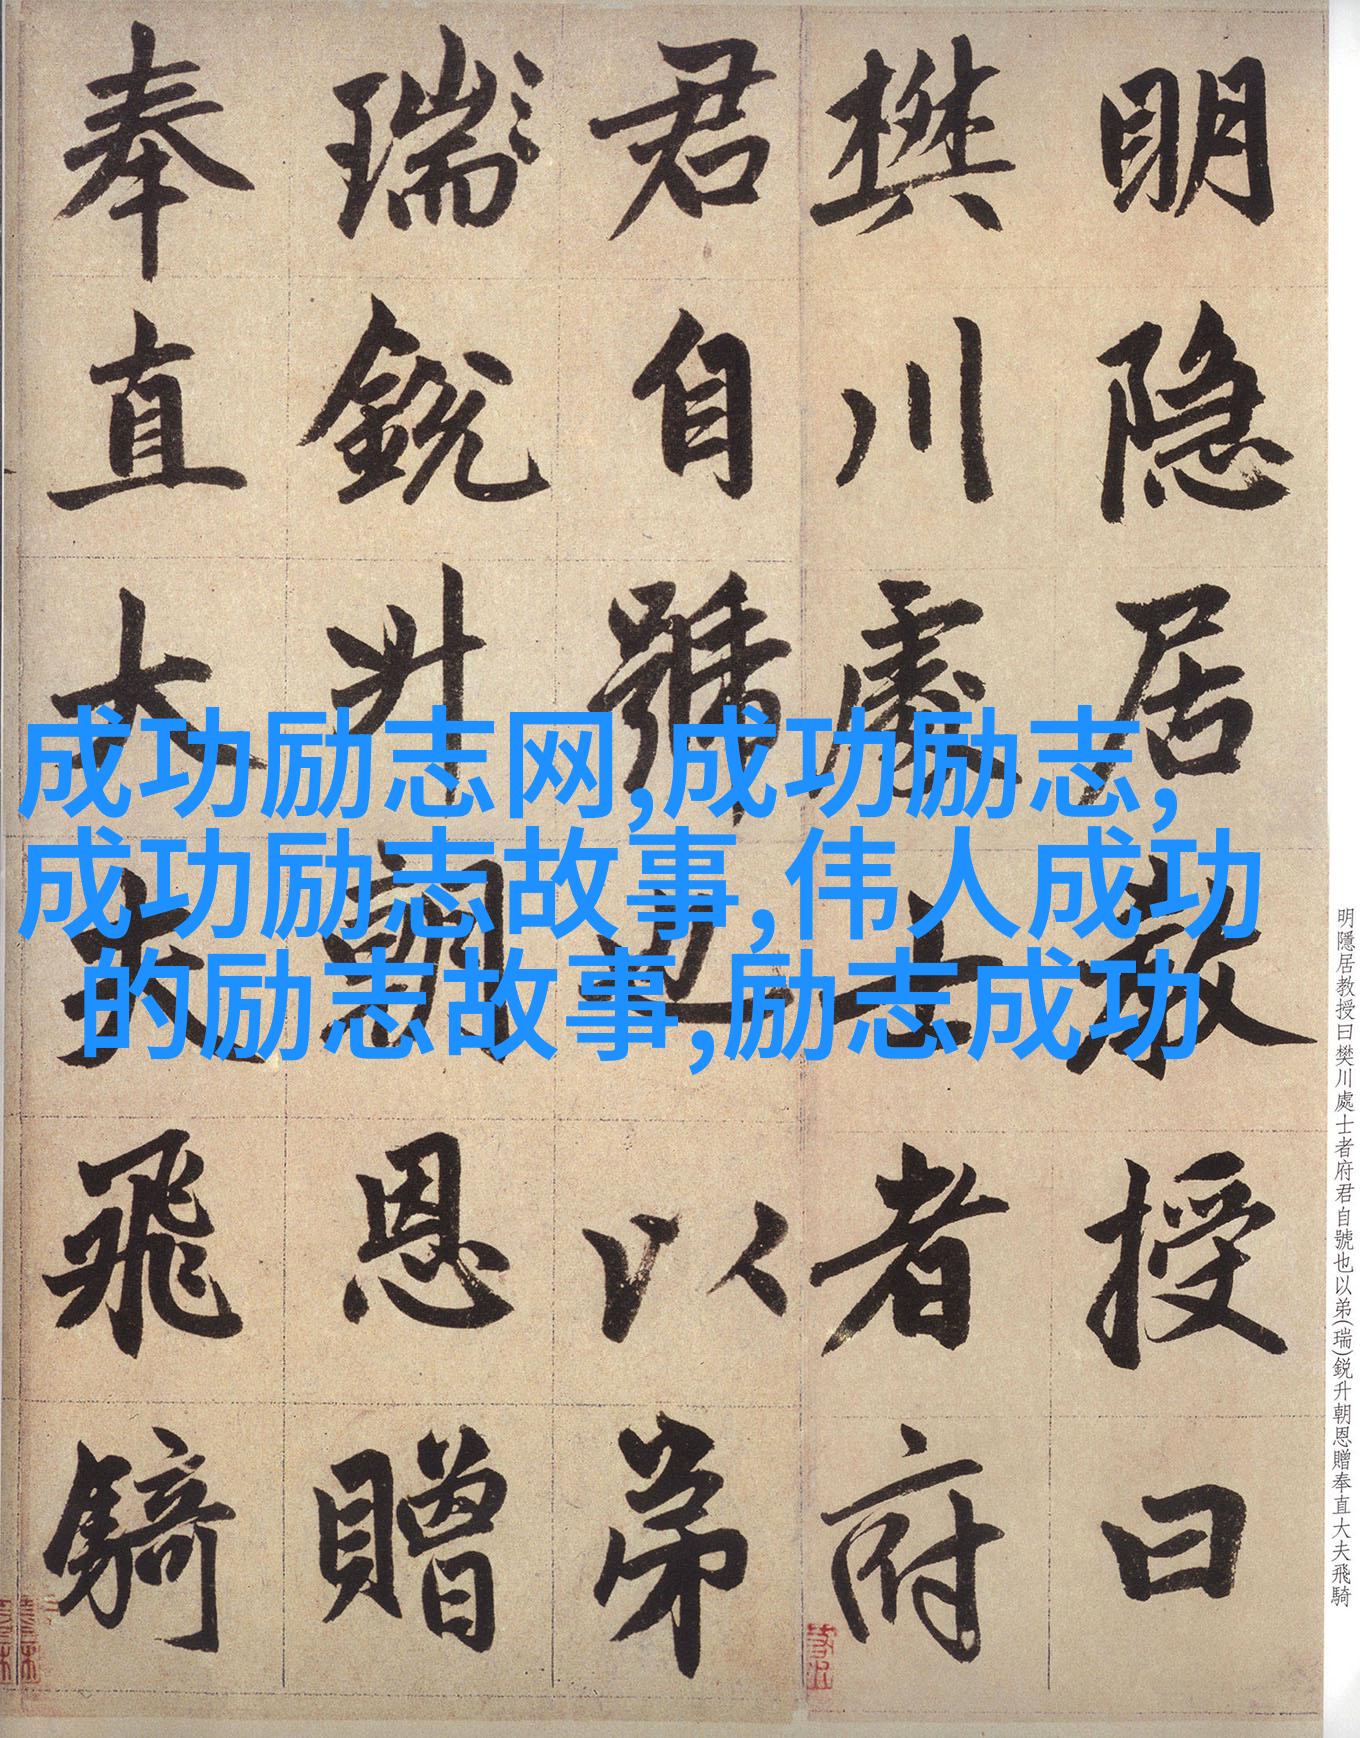 明隐居教授曰
樊川處士者府
君自號也以弟
瑞銳升朝恩贈
奉直大夫飛騎
成功励志网,成功励志,
成功励志故事,伟人成功
的励志故事,励志成功
明隱居教授曰樊川處士者府君自號也以弟(瑞)鋭升朝恩贈奉直大夫飛騎